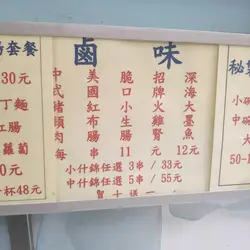 套餐
30元
丁麵
紅腸
蘿蔔
0元
杯48元
鹵味
中式豬頭肉
美國紅布腸
脆口小生腸
招牌火雞腎
深海大墨魚
每串11元12元
小什錦任選3串/33元
中什錦任選5串/55元
秘
小碗
中碗
大
50-